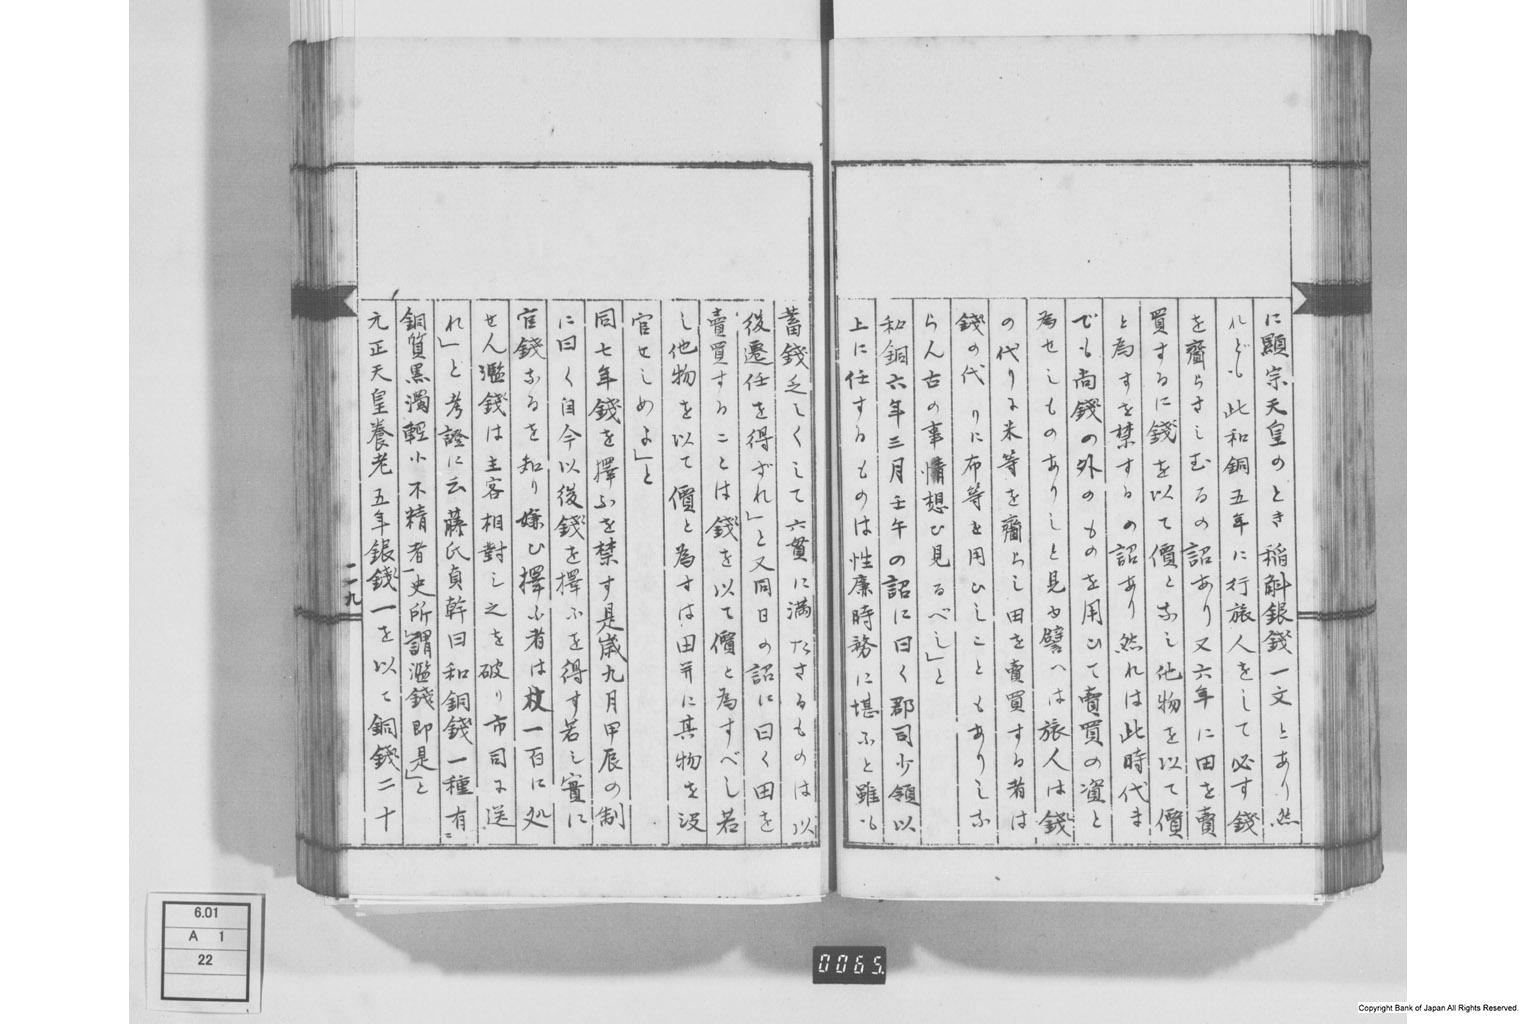 に顯宗天皇のとき稲斛銀錢一文とあり然
れども此和銅五年に行旅人をして必す錢
を齎らさしむるの詔あり又六年に田を賣
買するに錢を以て價となし他物を以て價
と為すを禁するの詔あり然れは此時代ま
でも尚錢の外のものを用ひて賣買の資と
為せしものありしと見ゆ譬へは旅人は錢
の代りに米等を齎らし田を賣買する者は
錢の代りに布等を用ひしこともありしな
らん古の事情想ひ見るべし」と
和銅六年三月壬午の詔に曰く郡司少領以
上に任するものは性廉時務に堪ふと雖も
蓄錢乏しくして六貫に満たさるものは以
後遷任を得ざれ」と又同日の詔に曰く田を
賣買することは錢を以て價と為すべし若
し他物を以て價と為すは田并に其物を没
官せしめよ」と
同七年錢を擇ふを禁す是歳九月甲辰の制
に曰く自今以後錢を擇ふを得す若し實に
官錢なるを知り嫌ひ擇ふ者は杖一百に処
せん濫錢は主客相對し之を破り市司に送
れ」と考證に云藤氏貞幹曰和銅錢一種有
銅質黒濁輕小不精者史所謂濫錢即是」と
元正天皇養老五年銀錢一を以て銅錢二十
二九
6.01
A 1
22
0065
Copyright Bank of Japan All Rights Reserved.